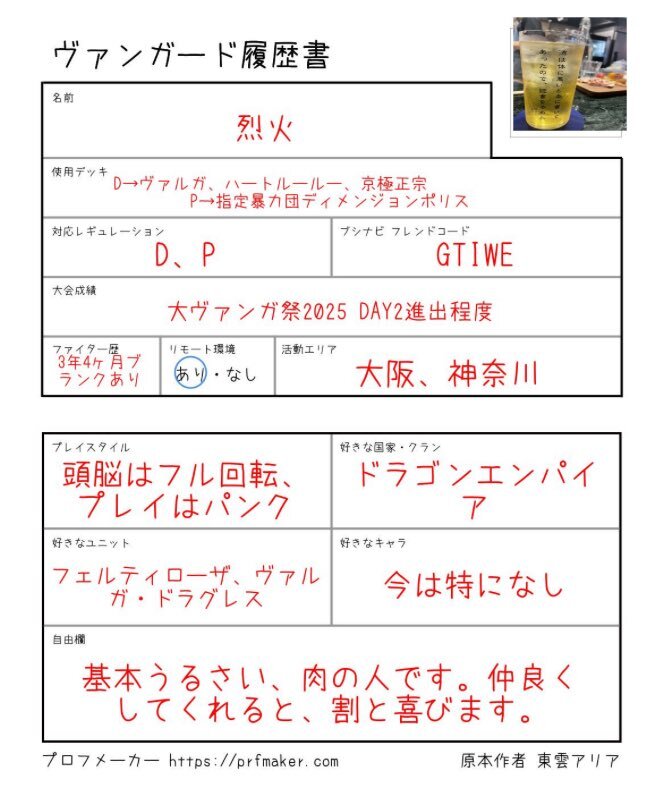 ヴァンガード履歴書
名前
烈火
使用デッキ
D→ヴァルガ、ハートルールー、京極正宗
P→指定暴力団ディメンジョンポリス
対応レギュレーション
D、P
ブシナビ フレンドコード
GTIWE
大会成績
大ヴァンガ祭2025 DAY2進出程度
ファイター歴
3年4ヶ月ブ
ランクあり
リモート環境
あり・なし
活動エリア
大阪、神奈川
プレイスタイル
頭脳はフル回転、
プレイはパンク
好きな国家・クラン
ドラゴンエンパイ
ア
好きなユニット
フェルティローザ、ヴァル
ガ・ドラグレス
好きなキャラ
今は特になし
自由欄
基本うるさい、肉の人です。仲良く
してくれると、割と喜びます。
プロフメーカー https://prfmaker.com
原本作者 東雲アリア